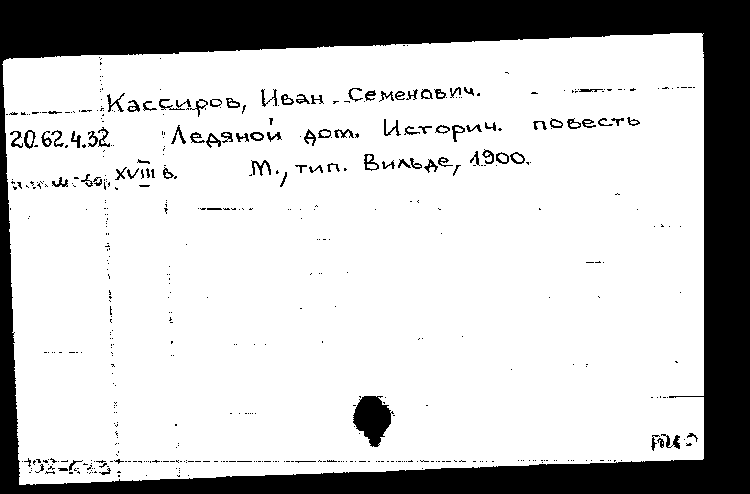 Кассиров, Иван Семенович.
20.62.4.32 Ледяной дом. Историч. повесть
XVIII в. М., тип. Вильде, 1900.